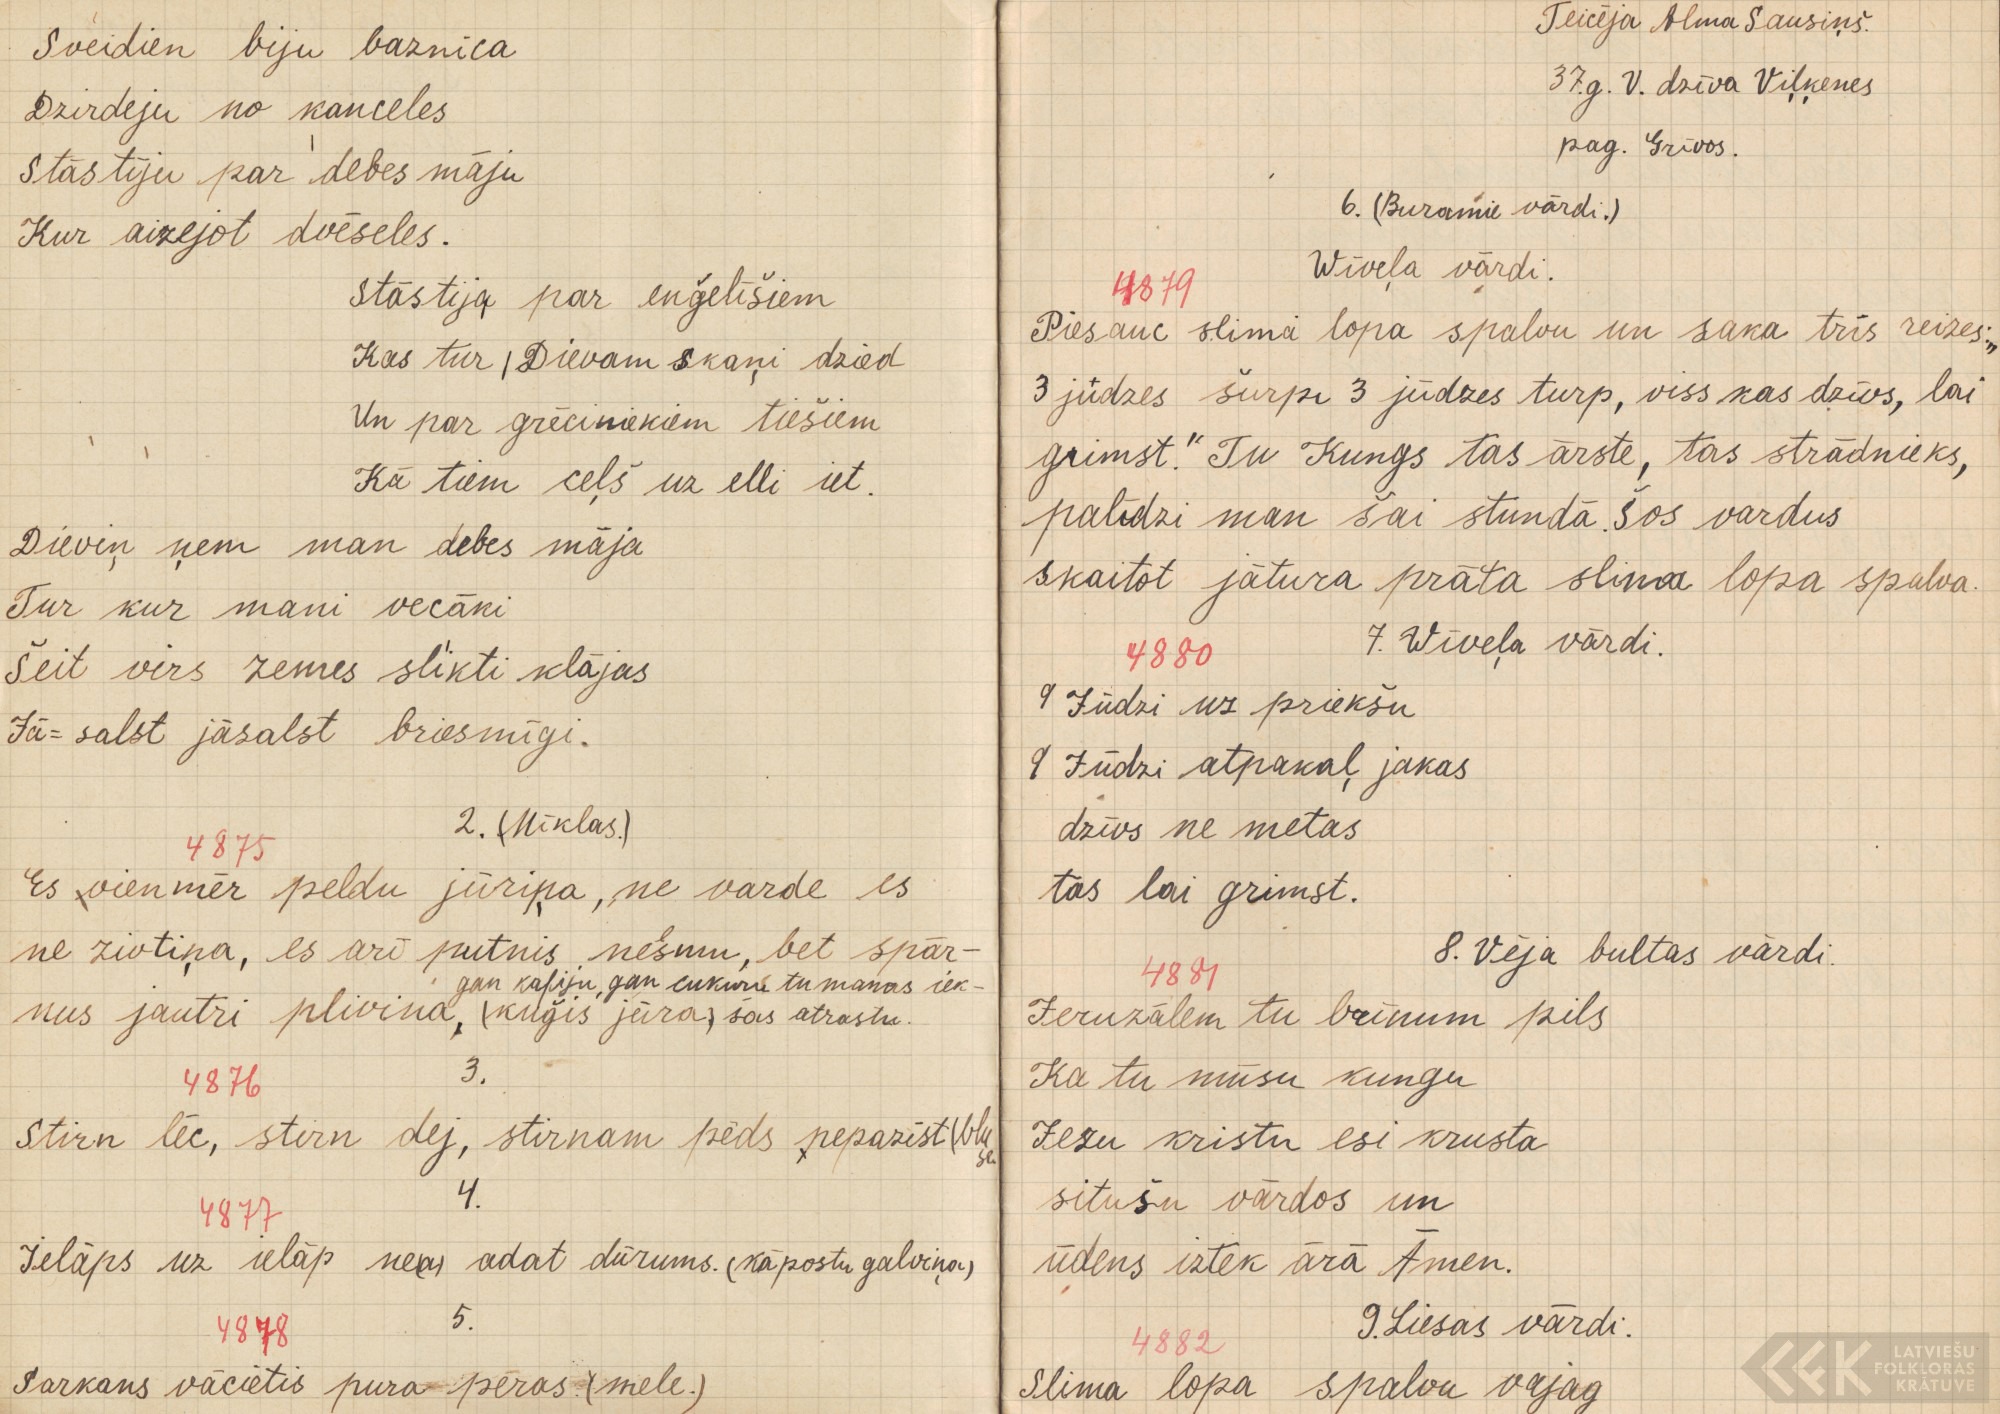 Sveidien biju baznīca
Dzirdeju no kanceles
Stāstīju par debes māju
Kur aizejot dvēseles.
Stāstija par enģelīšiem
Kas tur, Dievam skaņi dzied
Un par grēciniekiem tiešiem
Kā tiem ceļš uz elli iet.
Dieviņ ņem man debes māja
Tur kur mani vecāki
Šeit virs zemes slikti klājas
Jā= salst jāsalst briesmīgi.
2. (Mīklas.)
4875
Es vienmēr peldu jūriņa, ne varde es
ne zivtiņa, es arī putnis nešmu, bet spār-
gan kafiju, gan cukuru tu manas iek-
nus jautri plivina, (kuģis jūra) šas atrastu.
3.
4876
Stirn lēc, stirn dej, stirnam pēds nepazīst (blusa
4.
4877
Ielāps uz ielāp ne(a) adat dūrums. (kāpostu galviņa)
5.
4878
Sarkans vācietis pura pēras. (mele.)
Teicēja Alma Sausiņš.
37.g. V. dzīva Viļķenes
pag. Grīvos.
6. (Buramie vārdi.)
Wīveļa vārdi.
4879
Piesauc slima lopa spalvu un saka trīs reizes: „
3 jūdzes šurp 3 jūdzes turp, viss kas dzīvs, lai
grimst." Tu Kungs tas ārste, tas strādnieks,
palīdzi man šai stundā. Šos vardus
skaitot jātura prāta slima lopa spalva.
7. Wīveļa vārdi.
4880
9 Jūdzi uz priekšu
9 Jūdzi atpakaļ jakas
dzīvs ne metas
tas lai grimst.
8. Vēja bultas vārdi.
4881
Jeruzālem tu brīnum pils
Ka tu mūsu kungu
Jezu kristu esi krusta
situšu vārdos un
ūdens iztek ārā Āmen.
9. Liesas vārdi.
4882
Slima lopa spalvu vajag
LATVIEŠU
FOLKLORAS
KRĀTUVE